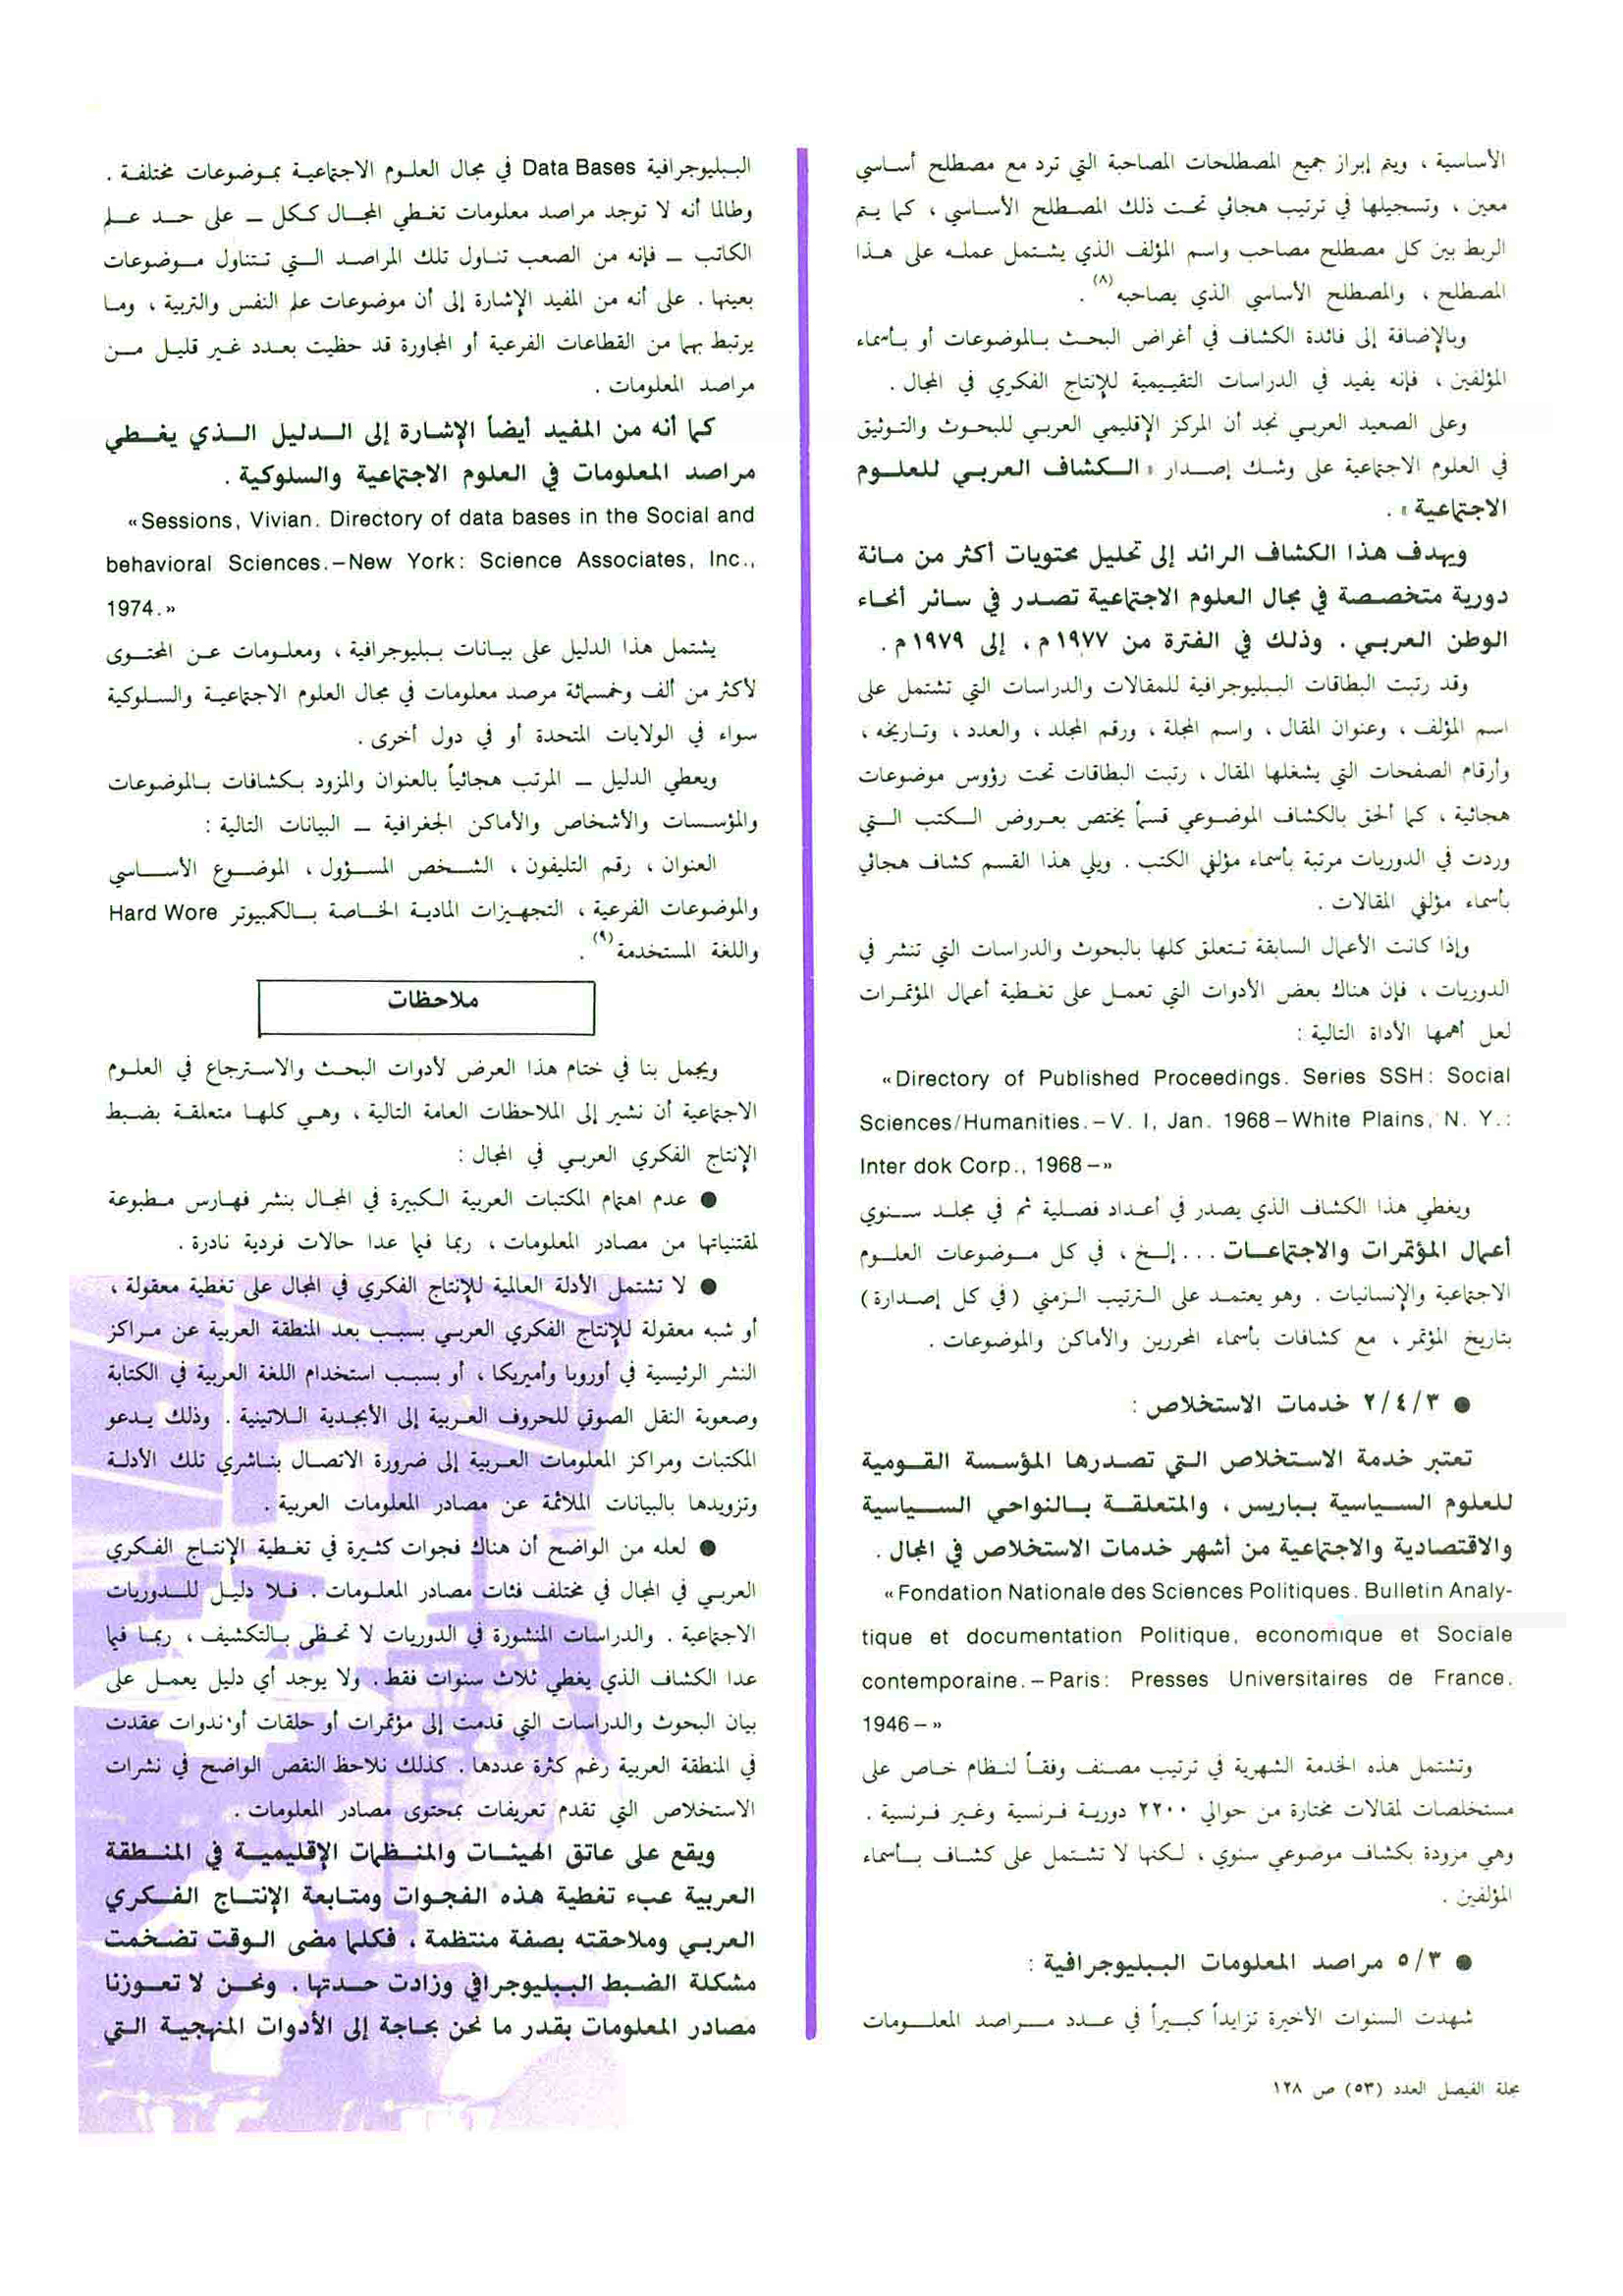 الأساسية ، ويتم إبراز جميع المصطلحات المصاحبة التي ترد مع مصطلح أساسي
معين ، وتسجيلها في ترتيب هجائي تحت ذلك المصطلح الأساسي ، كما يتم
الربط بين كل مصطلح مصاحب واسم المؤلف الذي يشتمل عمله على هذا
المصطلح ، والمصطلح الأساسي الذي يصاحبه (٨) .
وبالإضافة إلى فائدة الكشاف في أغراض البحث بالموضوعات أو بأسماء
المؤلفين ، فإنه يفيد في الدراسات التقييمية للإنتاج الفكري في المجال .
وعلى الصعيد العربي نجد أن المركز الإقليمي العربي للبحوث والتوثيق
في العلوم الاجتماعية على وشك إصدار « الكشاف العربي للعلوم
الاجتماعية » .
ويهدف هذا الكشاف الرائد إلى تحليل محتويات أكثر من مائة
دورية متخصصة في مجال العلوم الاجتماعية تصدر في سائر أنحاء
الوطن العربي . وذلك في الفترة من ١٩٧٧ م ، إلى ١٩٧٩ م .
وقد رتبت البطاقات الببليوجرافية للمقالات والدراسات التي تشتمل على
اسم المؤلف ، وعنوان المقال ، واسم المجلة ، ورقم المجلد ، والعدد ، وتاريخه ،
وأرقام الصفحات التي يشغلها المقال ، رتبت البطاقات تحت رؤوس موضوعات
هجائية ، كما ألحق بالكشاف الموضوعي قسماً يختص بعروض الكتب التي
وردت في الدوريات مرتبة بأسماء مؤلفي الكتب . ويلي هذا القسم كشاف هجائي
بأسماء مؤلفي المقالات .
وإذا كانت الأعمال السابقة تتعلق كلها بالبحوث والدراسات التي تنشر في
الدوريات ، فإن هناك بعض الأدوات التي تعمل على تغطية أعمال المؤتمرات
لعل أهمها الأداة التالية :
«Directory of Published Proceedings. Series SSH: Social
Sciences/Humanities.–V. I, Jan. 1968–White Plains, N. Y.:
Inter dok Corp., 1968–»
ويغطي هذا الكشاف الذي يصدر في أعداد فصلية ثم في مجلد سنوي
أعمال المؤتمرات والاجتماعات ... إلخ ، في كل موضوعات العلوم
الاجتماعية والإنسانيات . وهو يعتمد على الترتيب الزمني (في كل إصدارة)
بتاريخ المؤتمر ، مع كشافات بأسماء المحررين والأماكن والموضوعات .
● ٢/٤/٣ خدمات الاستخلاص :
تعتبر خدمة الاستخلاص التي تصدرها المؤسسة القومية
للعلوم السياسية بباريس ، والمتعلقة بالنواحي السياسية
والاقتصادية والاجتماعية من أشهر خدمات الاستخلاص في المجال .
«Fondation Nationale des Sciences Politiques. Bulletin Analy-
tique et documentation Politique, economique et Sociale
contemporaine.–Paris: Presses Universitaires de France.
1946–»
وتشتمل هذه الخدمة الشهرية في ترتيب مصنف وفقاً لنظام خاص على
مستخلصات لمقالات مختارة من حوالي ٢٢٠٠ دورية فرنسية وغير فرنسية .
وهي مزودة بكشاف موضوعي سنوي ، لكنها لا تشتمل على كشاف بأسماء
المؤلفين .
● ٥/٣ مراصد المعلومات الببليوجرافية :
شهدت السنوات الأخيرة تزايداً كبيراً في عدد مراصد المعلومات
الببليوجرافية Data Bases في مجال العلوم الاجتماعية بموضوعات مختلفة .
وطالما أنه لا توجد مراصد معلومات تغطي المجال ككل ــ على حد علم
الكاتب ــ فإنه من الصعب تناول تلك المراصد التي تتناول موضوعات
بعينها . على أنه من المفيد الإشارة إلى أن موضوعات علم النفس والتربية ، وما
يرتبط بهما من القطاعات الفرعية أو المجاورة قد حظيت بعدد غير قليل من
مراصد المعلومات .
كما أنه من المفيد أيضاً الإشارة إلى الدليل الذي يغطي
مراصد المعلومات في العلوم الاجتماعية والسلوكية .
«Sessions, Vivian. Directory of data bases in the Social and
behavioral Sciences.–New York: Science Associates, Inc.,
1974.»
يشتمل هذا الدليل على بيانات ببليوجرافية ، ومعلومات عن المحتوى
لأكثر من ألف وخمسمائة مرصد معلومات في مجال العلوم الاجتماعية والسلوكية
سواء في الولايات المتحدة أو في دول أخرى .
ويعطي الدليل ــ المرتب هجائياً بالعنوان والمزود بكشافات بالموضوعات
والمؤسسات والأشخاص والأماكن الجغرافية ــ البيانات التالية :
العنوان ، رقم التليفون ، الشخص المسؤول ، الموضوع الأساسي
والموضوعات الفرعية ، التجهيزات المادية الخاصة بالكمبيوتر Hard Wore
واللغة المستخدمة (٩) .
ملاحظات
ويجمل بنا في ختام هذا العرض لأدوات البحث والاسترجاع في العلوم
الاجتماعية أن نشير إلى الملاحظات العامة التالية ، وهي كلها متعلقة بضبط
الإنتاج الفكري العربي في المجال :
● عدم اهتمام المكتبات العربية الكبيرة في المجال بنشر فهارس مطبوعة
لمقتنياتها من مصادر المعلومات ، ربما فيما عدا حالات فردية نادرة .
● لا تشتمل الأدلة العالمية للإنتاج الفكري في المجال على تغطية معقولة ،
أو شبه معقولة للإنتاج الفكري العربي بسبب بعد المنطقة العربية عن مراكز
النشر الرئيسية في أوروبا وأميريكا ، أو بسبب استخدام اللغة العربية في الكتابة
وصعوبة النقل الصوتي للحروف العربية إلى الأبجدية اللاتينية . وذلك يدعو
المكتبات ومراكز المعلومات العربية إلى ضرورة الاتصال بناشري تلك الأدلة
وتزويدها بالبيانات الملائمة عن مصادر المعلومات العربية .
● لعله من الواضح أن هناك فجوات كثيرة في تغطية الإنتاج الفكري
العربي في المجال في مختلف فئات مصادر المعلومات . فلا دليل للدوريات
الاجتماعية . والدراسات المنشورة في الدوريات لا تحظى بالتكشيف ، ربما فيما
عدا الكشاف الذي يغطي ثلاث سنوات فقط . ولا يوجد أي دليل يعمل على
بيان البحوث والدراسات التي قدمت إلى مؤتمرات أو حلقات أو ندوات عقدت
في المنطقة العربية رغم كثرة عددها . كذلك نلاحظ النقص الواضح في نشرات
الاستخلاص التي تقدم تعريفات بمحتوى مصادر المعلومات .
ويقع على عاتق الهيئات والمنظمات الإقليمية في المنطقة
العربية عبء تغطية هذه الفجوات ومتابعة الإنتاج الفكري
العربي وملاحقته بصفة منتظمة ، فكلما مضى الوقت تضخمت
مشكلة الضبط الببليوجرافي وزادت حدتها . ونحن لا تعوزنا
مصادر المعلومات بقدر ما نحن بحاجة إلى الأدوات المنهجية التي
مجلة الفيصل العدد (٥٣) ص ١٢٨